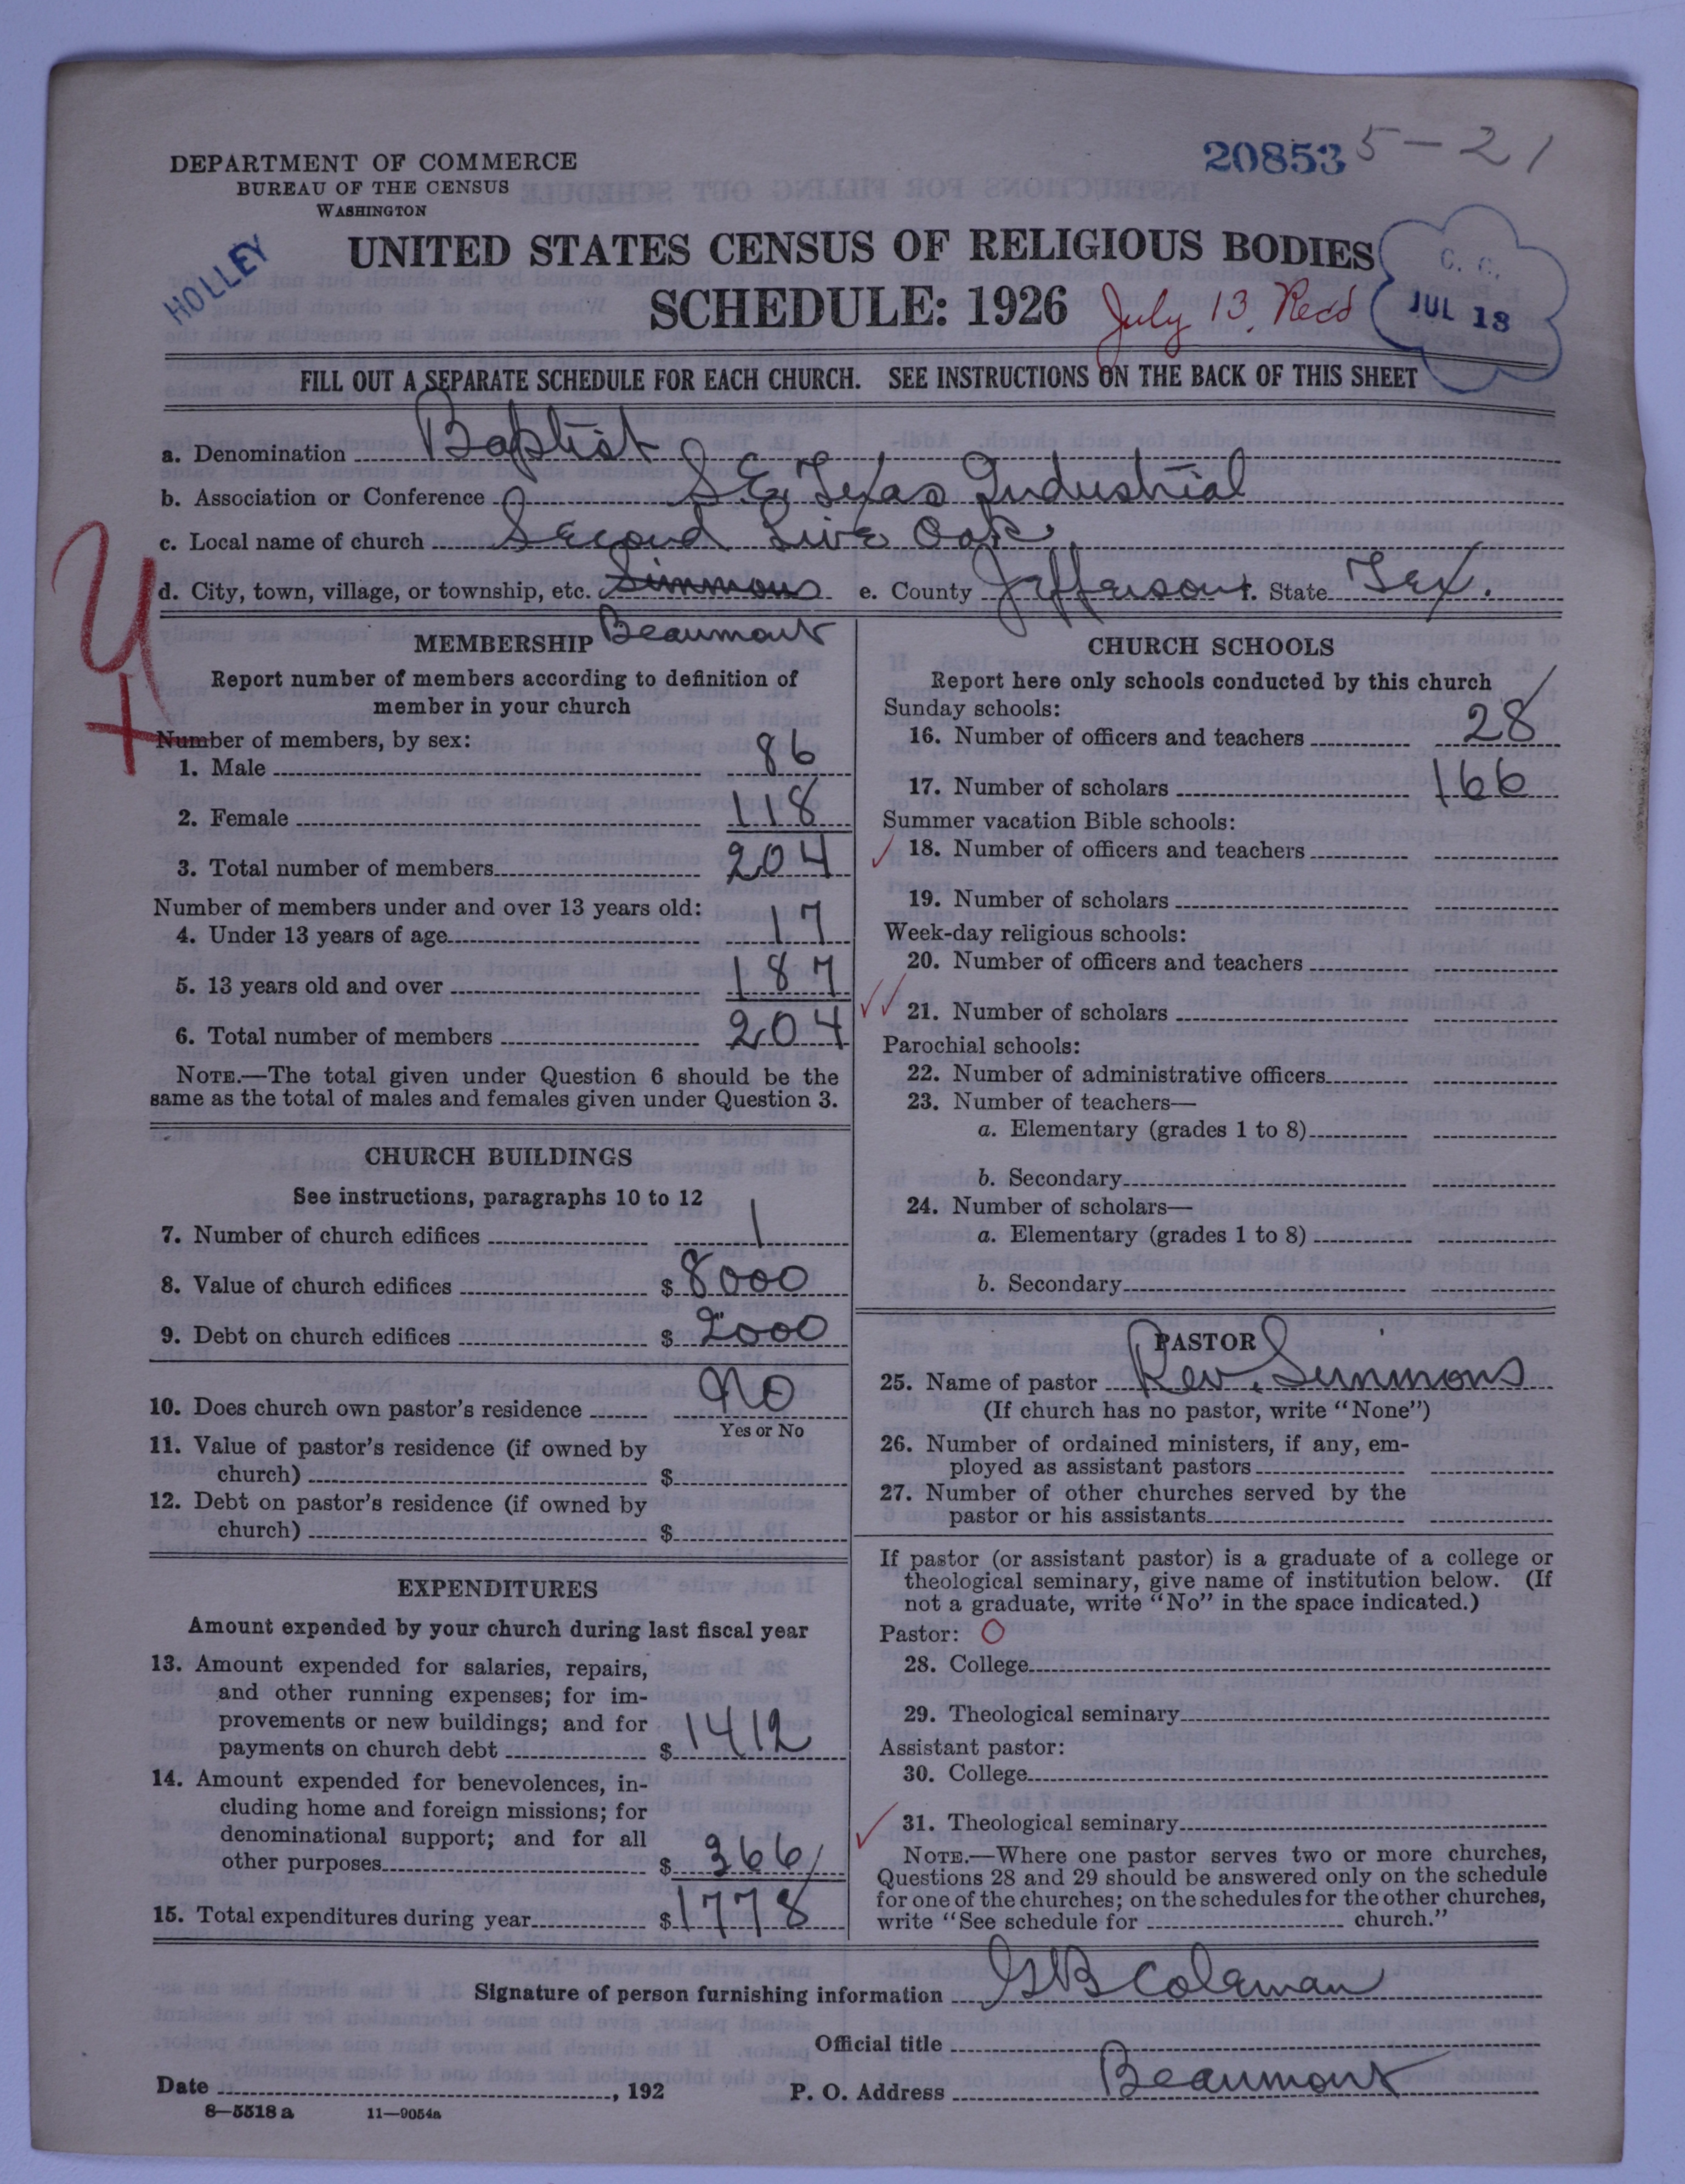 DEPARTMENT OF COMMERCE
BUREAU OF THE CENSUS
WASHINGTON
20853 5-21
HOLLEY
UNITED STATES CENSUS OF RELIGIOUS BODIES
SCHEDULE: 1926 July 13. Recd
C. G.
JUL 18
FILL OUT A SEPARATE SCHEDULE FOR EACH CHURCH. SEE INSTRUCTIONS ON THE BACK OF THIS SHEET
a. Denomination Baptist
b. Association or Conference S. E. Texas Industrial
c. Local name of church Second Live Oak
d. City, town, village, or township, etc. Simmons e. County Jefferson f. State Tex.
Beaumont
MEMBERSHIP
Report number of members according to definition of
member in your church
Number of members, by sex:
1. Male 86
2. Female 118
3. Total number of members 204
Number of members under and over 13 years old:
4. Under 13 years of age 17
5. 13 years old and over 187
6. Total number of members 204
NOTE.—The total given under Question 6 should be the
same as the total of males and females given under Question 3.
CHURCH BUILDINGS
See instructions, paragraphs 10 to 12
7. Number of church edifices 1
8. Value of church edifices $ 8000
9. Debt on church edifices $ 2000
10. Does church own pastor's residence No
Yes or No
11. Value of pastor's residence (if owned by
church) $
12. Debt on pastor's residence (if owned by
church) $
EXPENDITURES
Amount expended by your church during last fiscal year
13. Amount expended for salaries, repairs,
and other running expenses; for im-
provements or new buildings; and for
payments on church debt $ 1412
14. Amount expended for benevolences, in-
cluding home and foreign missions; for
denominational support; and for all
other purposes $ 366
15. Total expenditures during year $ 1778
CHURCH SCHOOLS
Report here only schools conducted by this church
Sunday schools:
16. Number of officers and teachers 28
17. Number of scholars 166
Summer vacation Bible schools:
18. Number of officers and teachers
19. Number of scholars
Week-day religious schools:
20. Number of officers and teachers
21. Number of scholars
Parochial schools:
22. Number of administrative officers
23. Number of teachers—
a. Elementary (grades 1 to 8)
b. Secondary
24. Number of scholars—
a. Elementary (grades 1 to 8)
b. Secondary
PASTOR
25. Name of pastor Rev. Simmons
(If church has no pastor, write "None")
26. Number of ordained ministers, if any, em-
ployed as assistant pastors
27. Number of other churches served by the
pastor or his assistants
If pastor (or assistant pastor) is a graduate of a college or
theological seminary, give name of institution below. (If
not a graduate, write "No" in the space indicated.)
Pastor: O
28. College
29. Theological seminary
Assistant pastor:
30. College
31. Theological seminary
NOTE.—Where one pastor serves two or more churches,
Questions 28 and 29 should be answered only on the schedule
for one of the churches; on the schedules for the other churches,
write "See schedule for church."
Signature of person furnishing information G B Coleman
Official title
Date , 192 P. O. Address Beaumont
8-5518 a 11-9054a